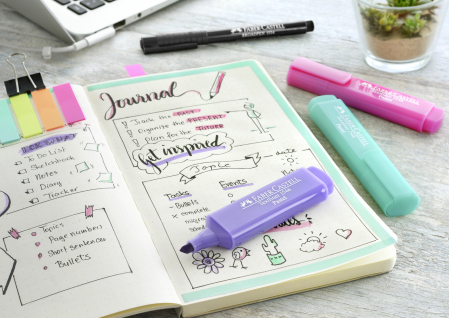 FABER-CASTELL
Journal
Track the PAST
Organize the PRESENT
Plan for the FUTURE
Get inspired
Topic
date
Tasks
Events
Bullets
complete
To Do List
Sketchbook
Notes
Diary
Tracker
Topics
Page numbers
Short sentences
Bullets
FABER-CASTELL
Pastel
FABER-CASTELL
FABER-CASTELL